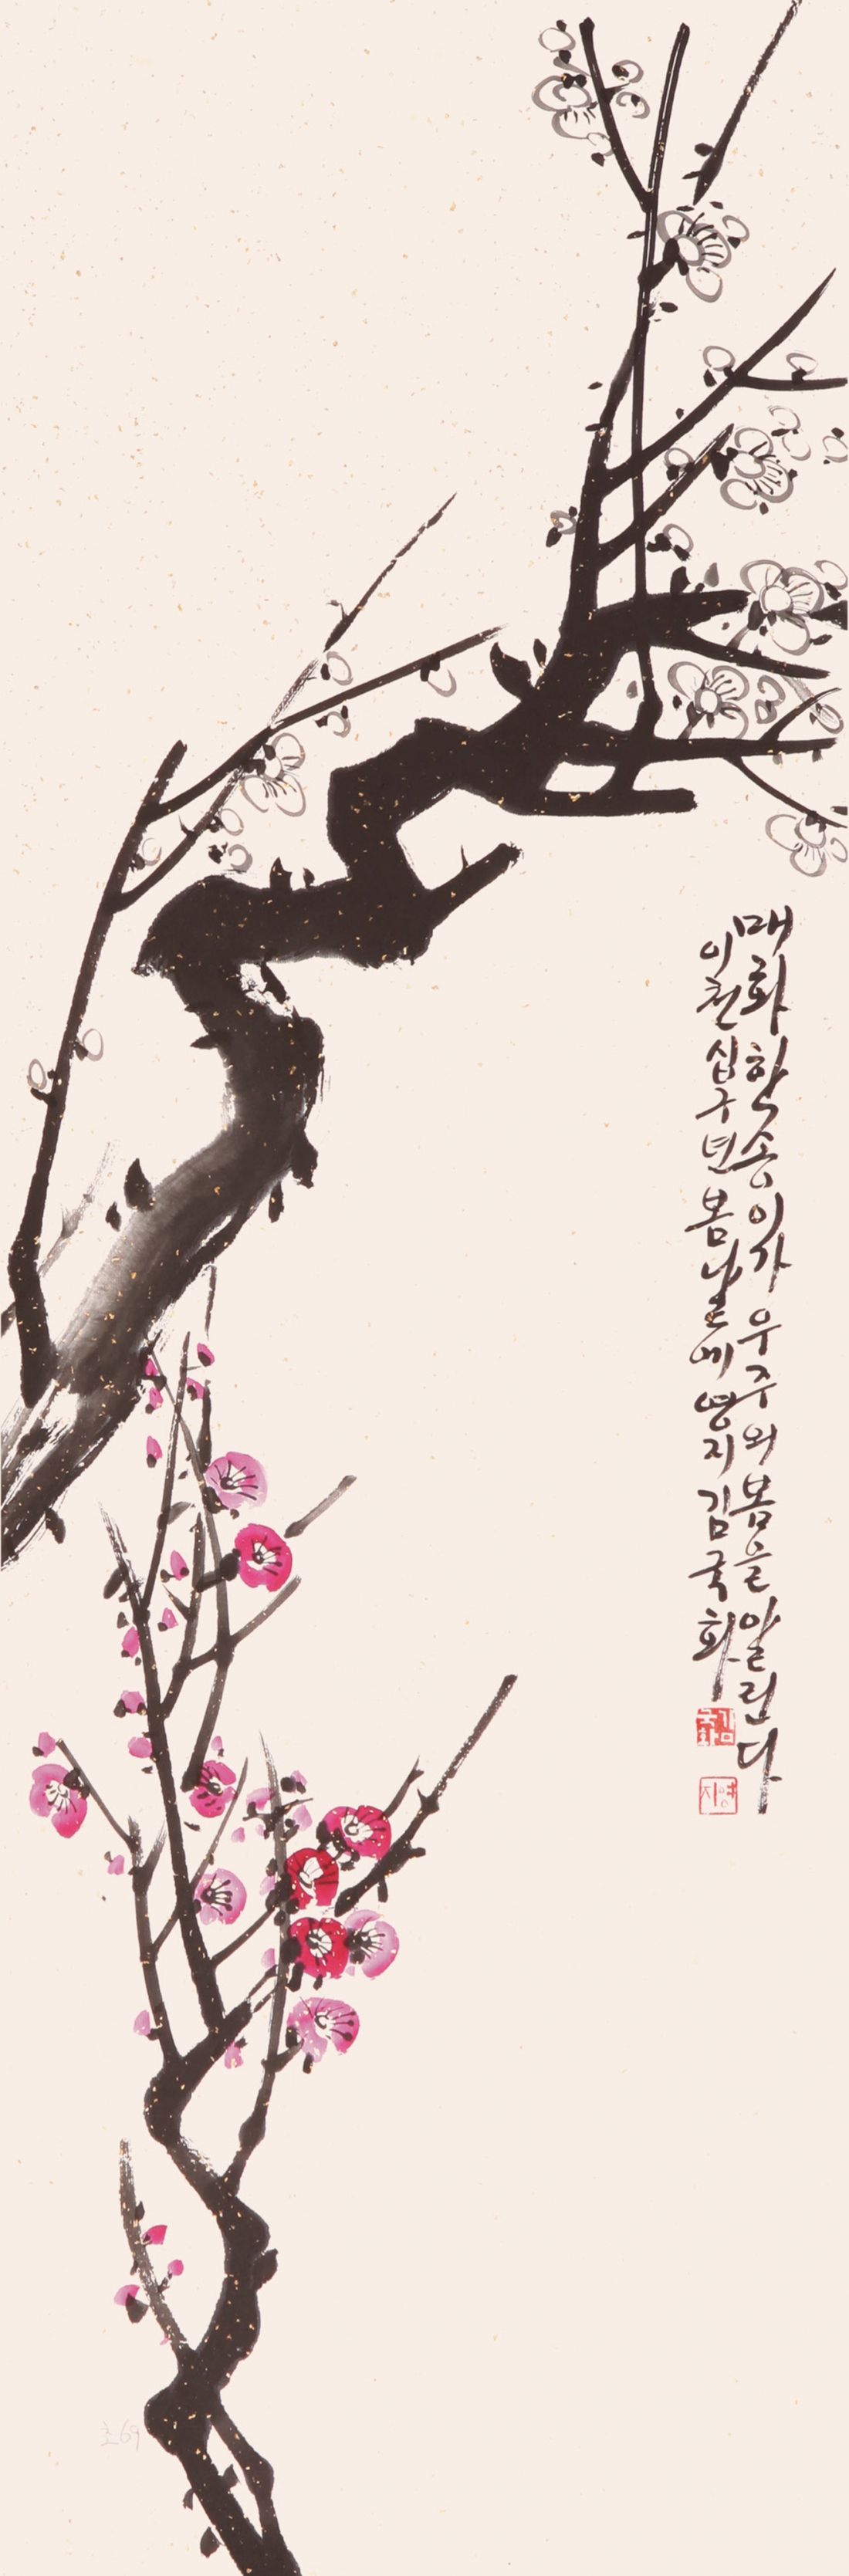 매화 한 송이가 우주와 봄을 알린다
이천십구년 봄날에 영지 김국화
김국화
영지
초69